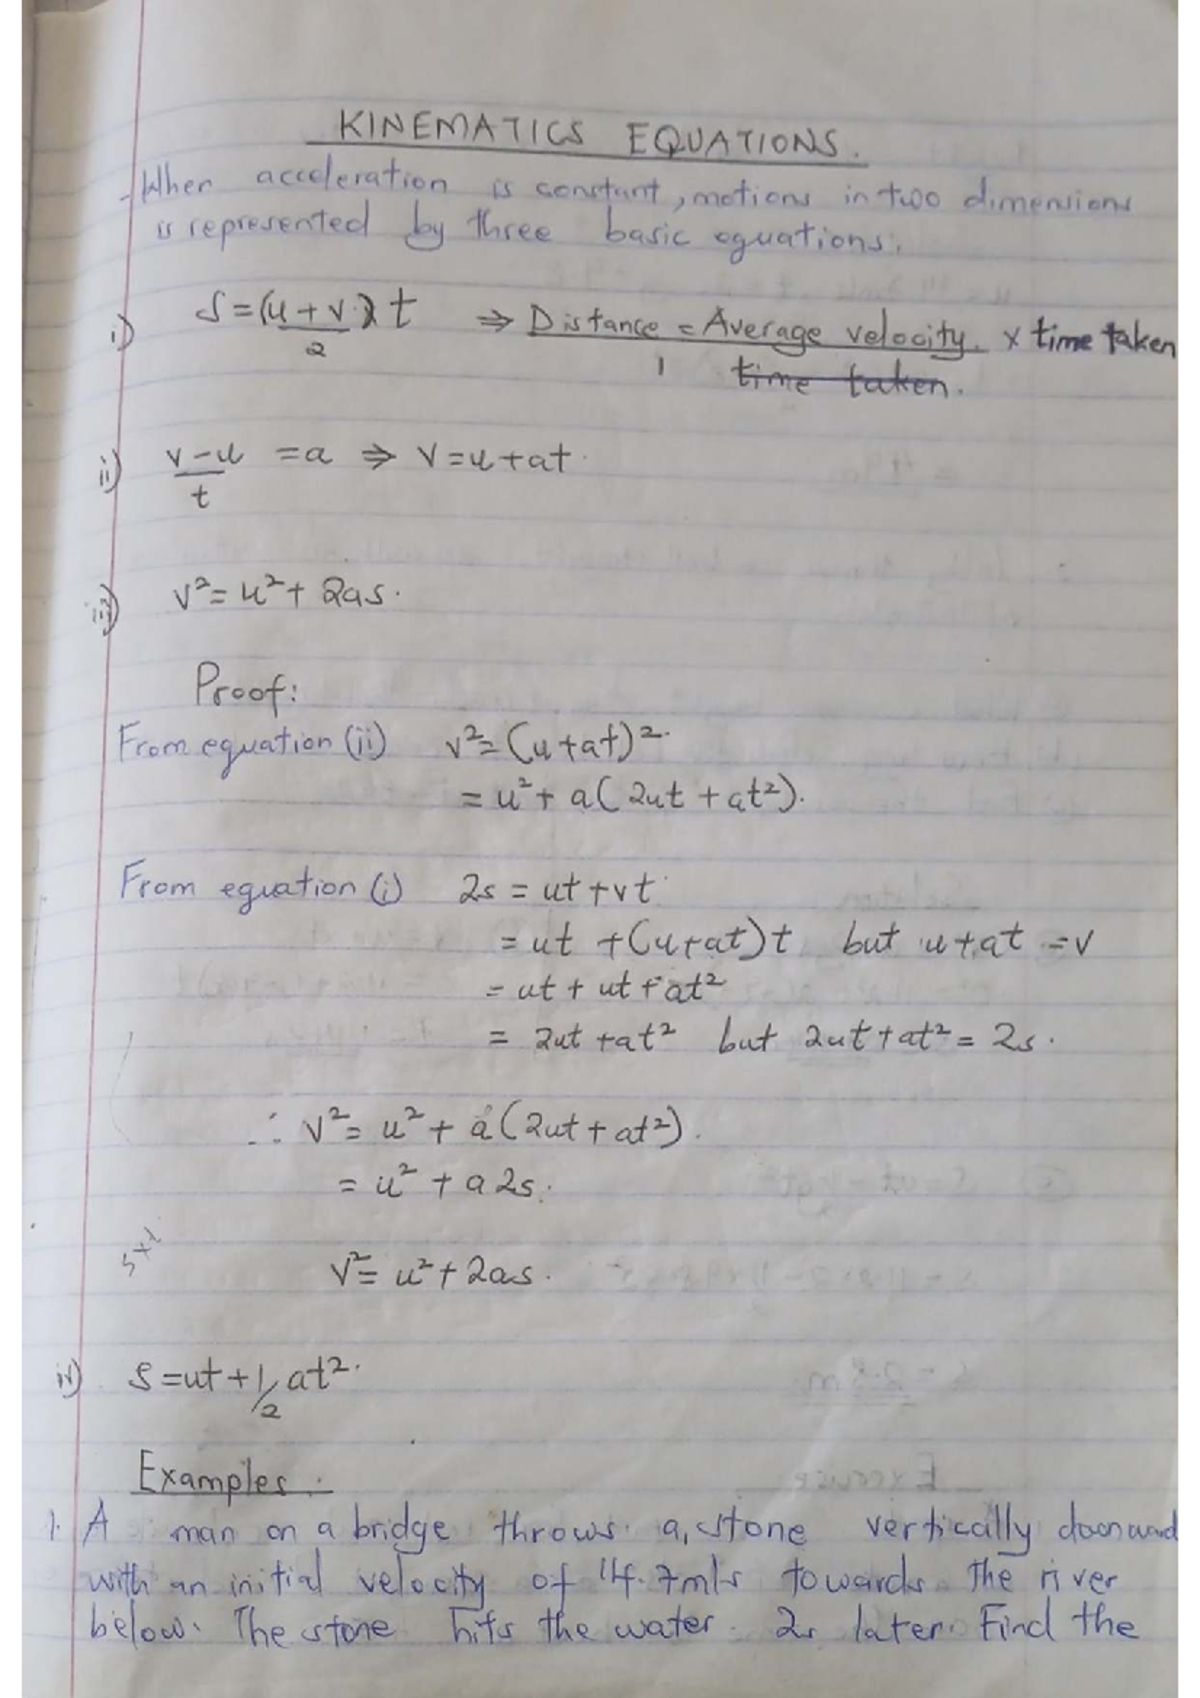 KINEMATICS EQUATIONS.
- When acceleration is constant, motions in two dimensions
is represented by three basic equations.
i) S = (u + v) t ⇒ Distance = Average velocity × time taken
2 1 time taken.
ii) v - u = a ⇒ v = u + at.
t
iii) v² = u² + 2as.
Proof:
From equation (ii) v² = (u + at)².
= u² + a(2ut + at²).
From equation (i) 2s = ut + vt
= ut + (u + at)t but u + at = v
= ut + ut + at²
= 2ut + at² but 2ut + at² = 2s.
∴ v² = u² + a(2ut + at²).
= u² + a2s.
v² = u² + 2as.
iv) S = ut + 1/2 at².
Examples.
1. A man on a bridge throws a stone vertically downward
with an initial velocity of 14.7m/s towards the river
below. The stone hits the water 2s later. Find the